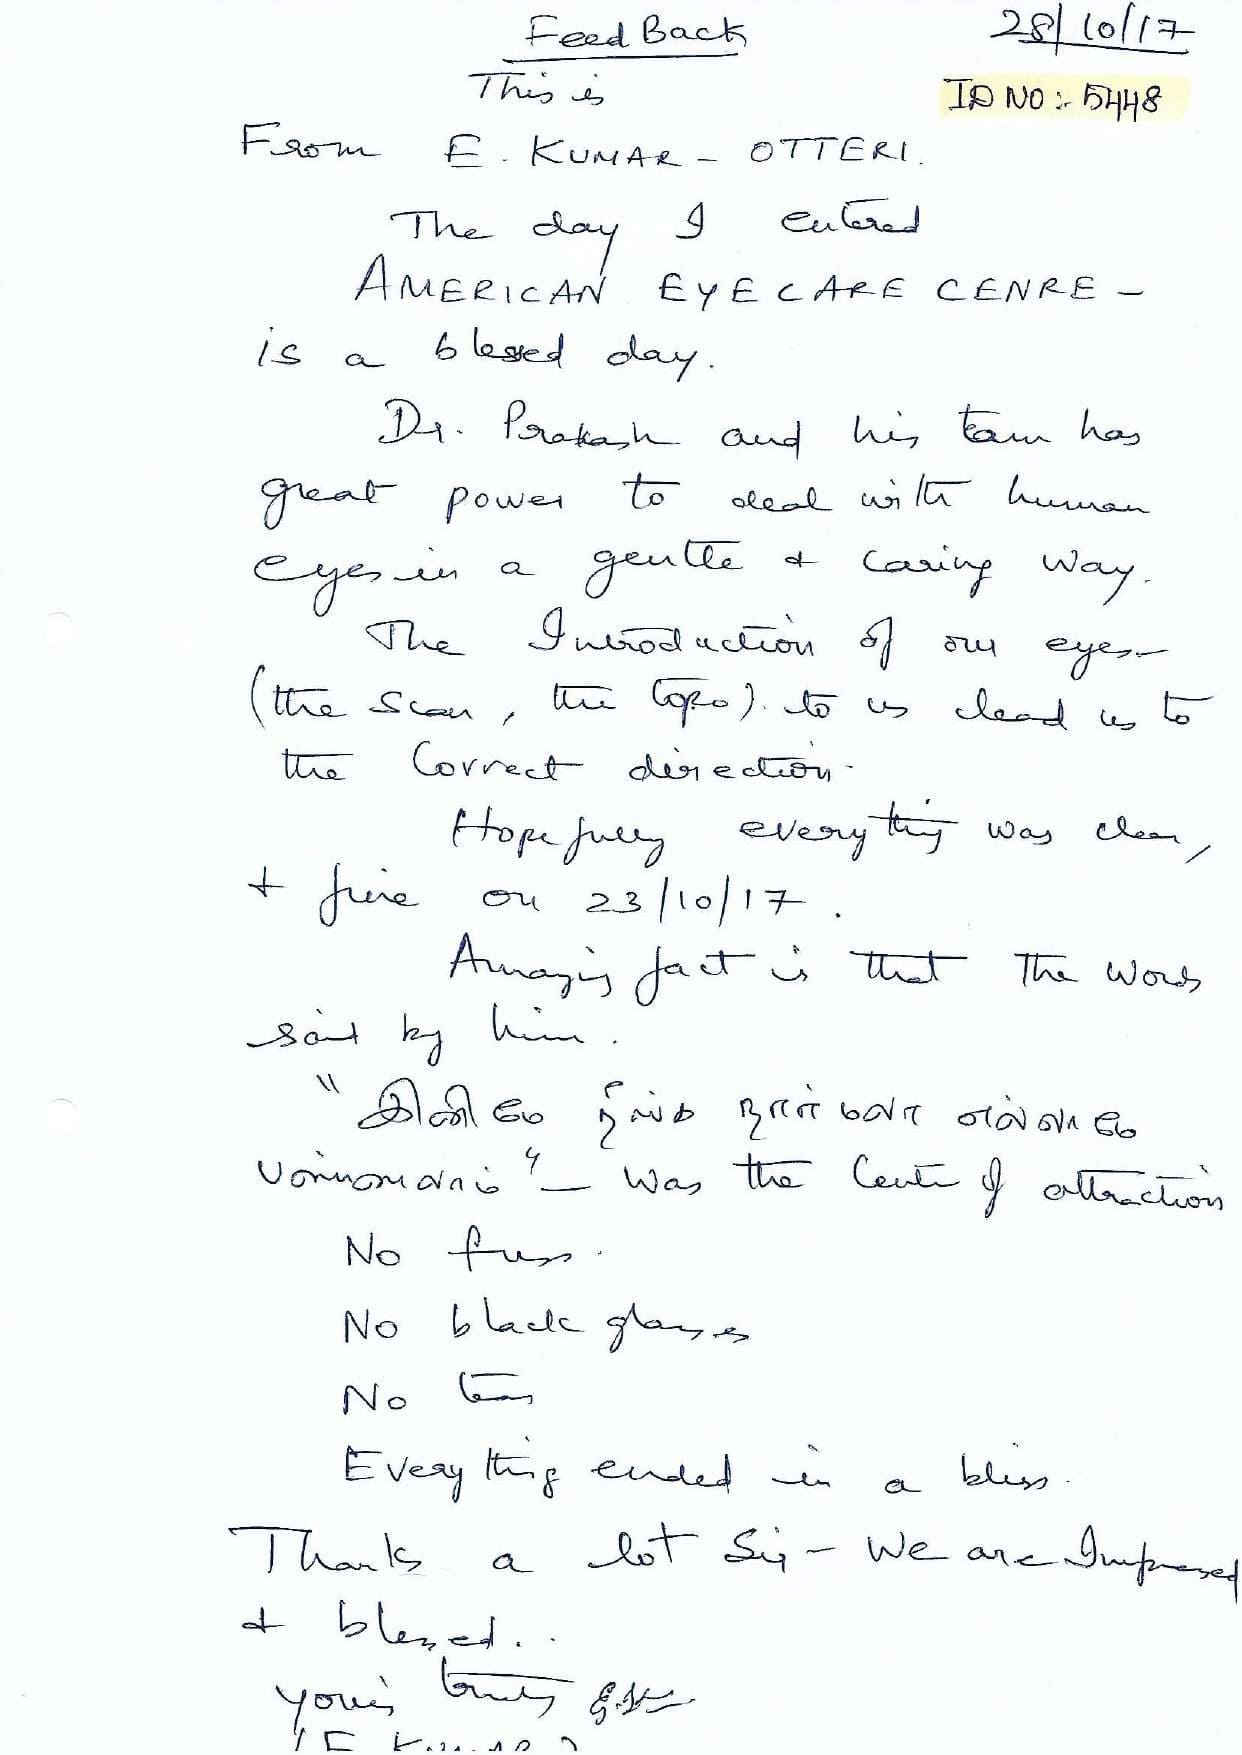 Feed Back
28/10/17
This is
ID NO :- 5448
From E. KUMAR - OTTERI.
The day I entered
AMERICAN EYE CARE CENRE -
is a blessed day.
Dr. Prakash and his team has
great power to deal with human
eyes in a gentle & caring way.
The Introduction of our eyes-
(the scan, the topo). to us lead us to
the Correct direction.
Hopefully everything was clear,
& fine on 23/10/17.
Amazing fact is that The words
said by him.
" இனிமே நீங்க நான்
" - was the Centre of attraction
No fuss.
No black glasses
No tears
Everything ended in a bliss.
Thanks a lot Sir - We are Impressed
& blessed..
yours truly
(E KUMAR)